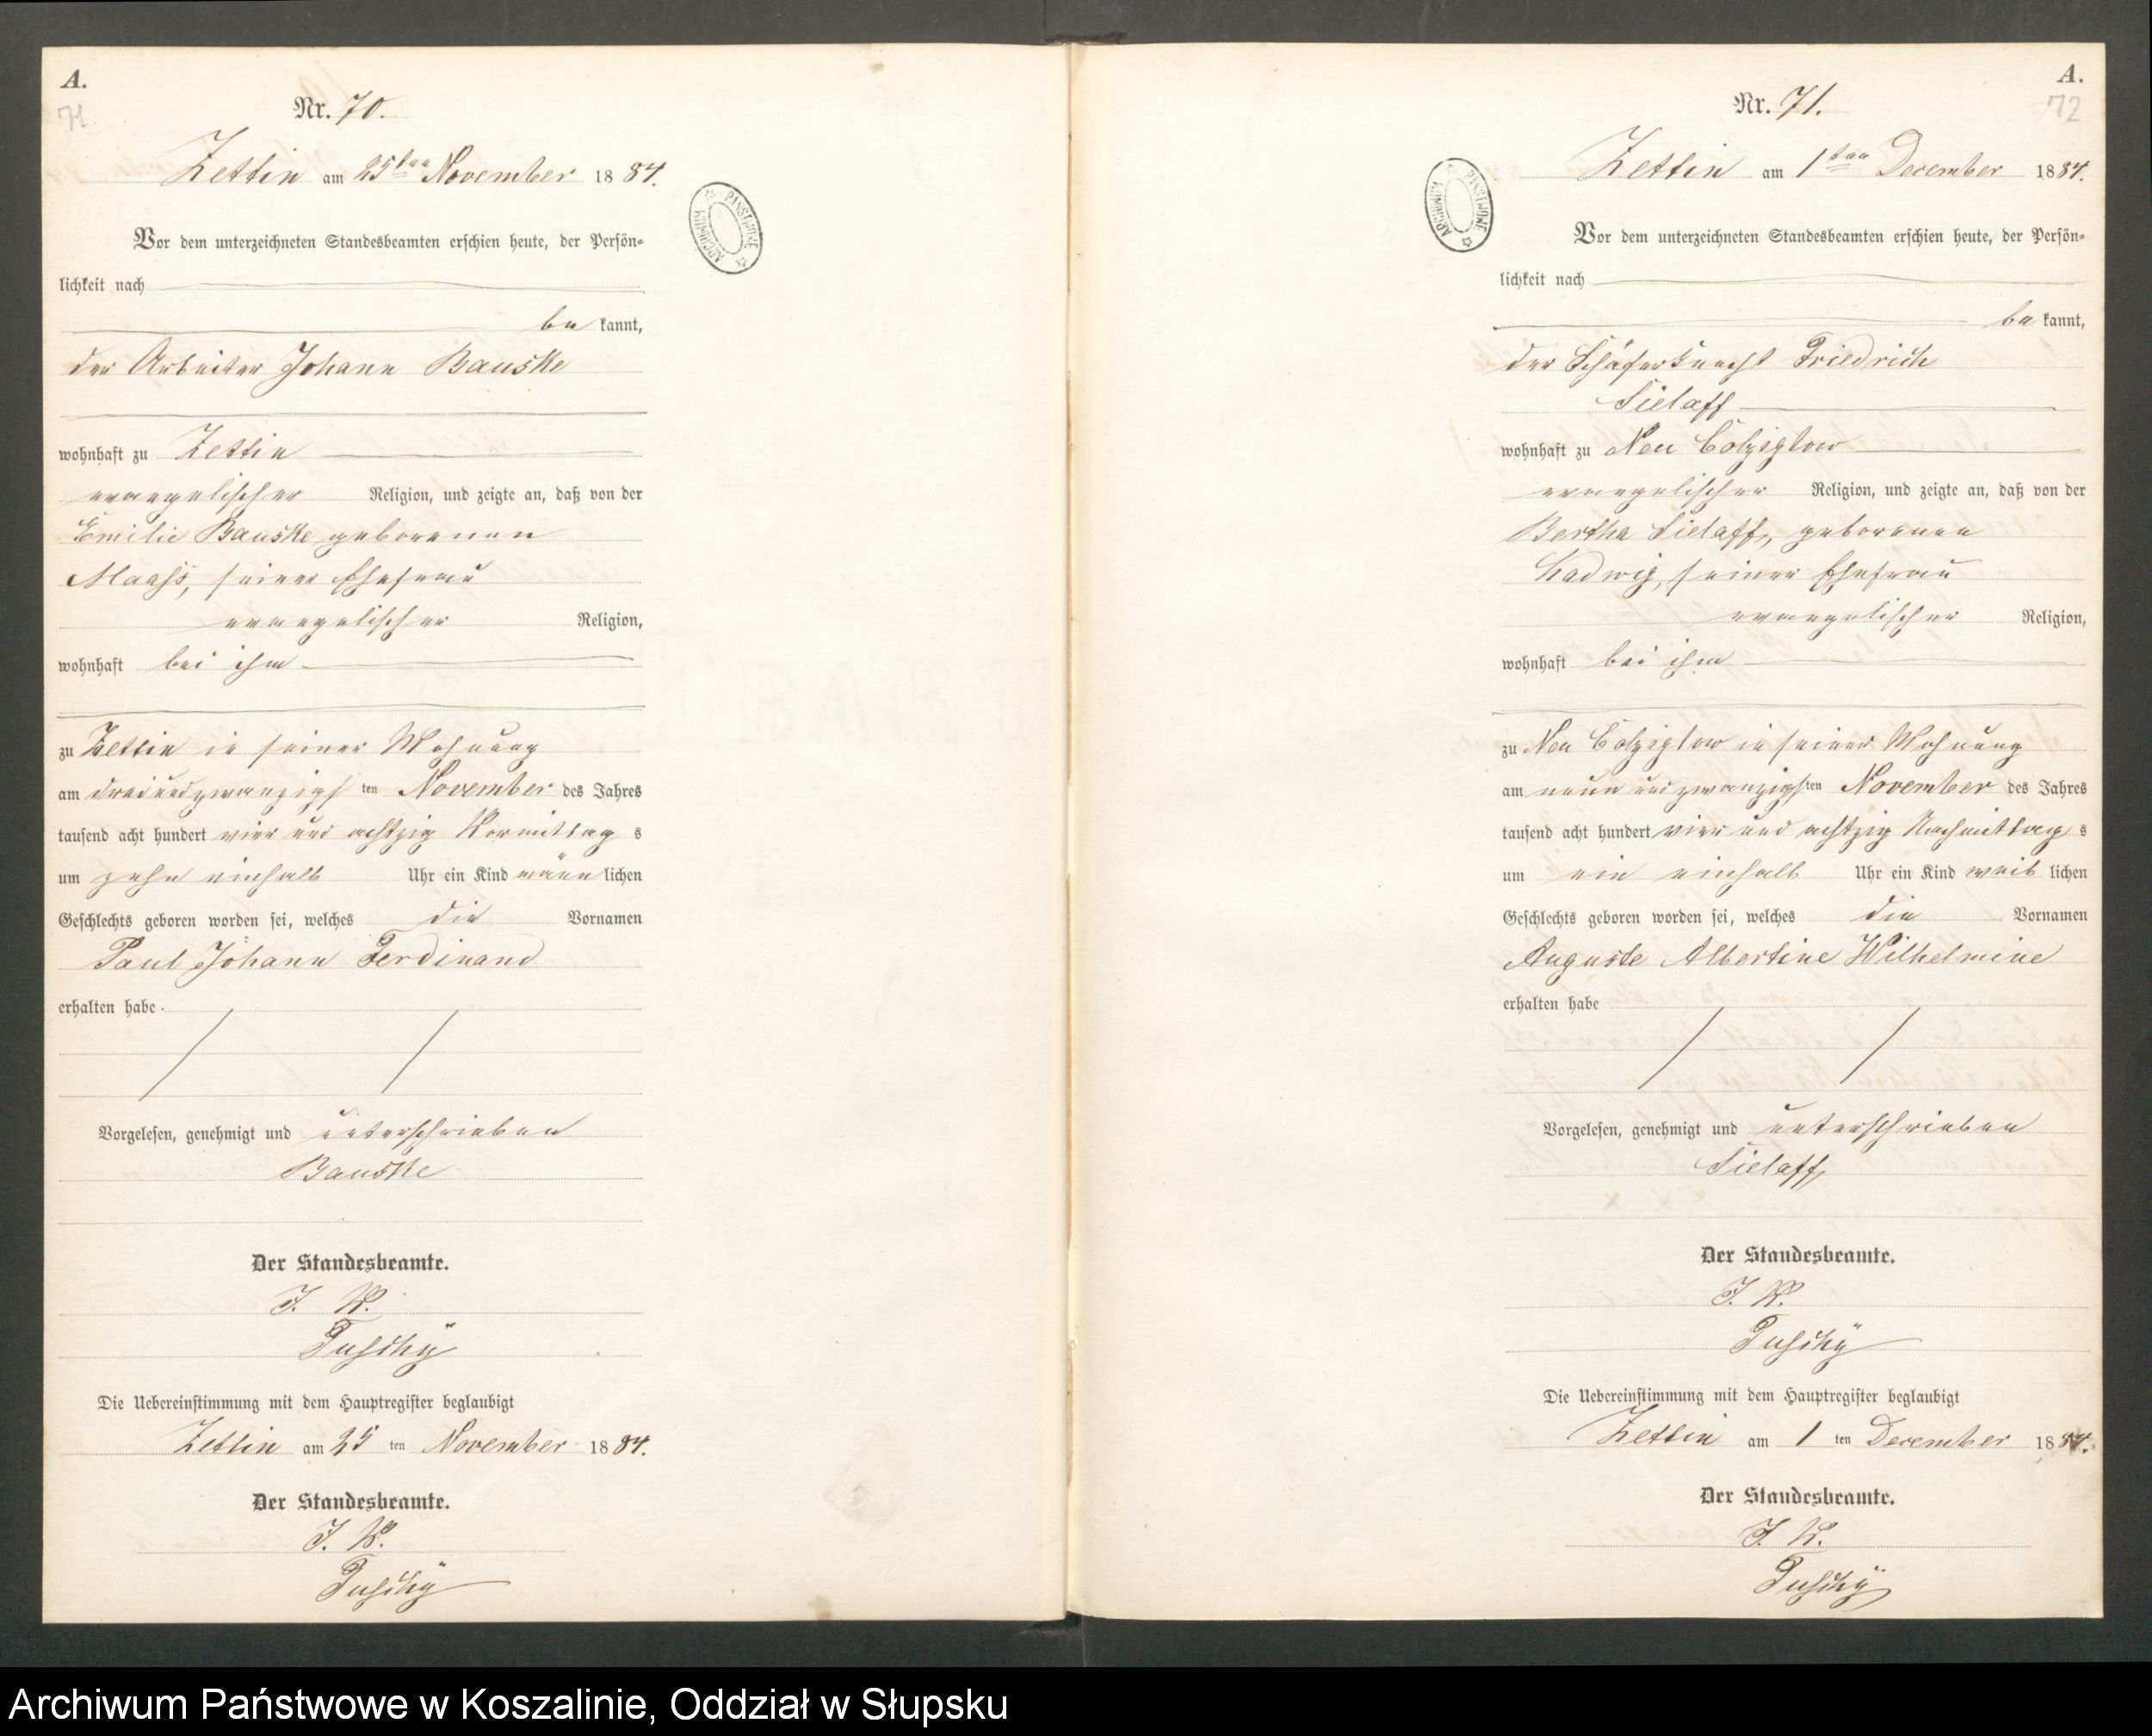 A.
71.
Nr. 70.
Zettin am 25ten November 1884.
Vor dem unterzeichneten Standesbeamten erschien heute, der Persön-
lichkeit nach
bekannt,
der Arbeiter Johann Bauske
wohnhaft zu Zettin
evangelischer Religion, und zeigte an, daß von der
Emilie Bauske geborenen
Maass, seiner Ehefrau
evangelischer Religion,
wohnhaft bei ihm
zu Zettin in seiner Wohnung
am dreiundzwanzigsten November des Jahres
tausend acht hundert vier und achtzig Vormittags
um zehn einhalb Uhr ein Kind männlichen
Geschlechts geboren worden sei, welches die Vornamen
Paul Johann Ferdinand
erhalten habe.
Vorgelesen, genehmigt und unterschrieben
Bauske
Der Standesbeamte.
J. V.
Die Uebereinstimmung mit dem Hauptregister beglaubigt
Zettin am 25ten November 1884.
Der Standesbeamte.
J. V.
A.
72
Nr. 71.
Zettin am 1ten December 1884.
ARCHIWUM PAŃSTWOWE
Vor dem unterzeichneten Standesbeamten erschien heute, der Persön-
lichkeit nach
bekannt,
der Schäferknecht Friedrich
Sielaff
wohnhaft zu Neu Colziglow
evangelischer Religion, und zeigte an, daß von der
Bertha Sielaff, geborenen
Radwig, seiner Ehefrau
evangelischer Religion,
wohnhaft bei ihm
zu Neu Colziglow in seiner Wohnung
am neun und zwanzigsten November des Jahres
tausend acht hundert vier und achtzig Nachmittags
um ein einhalb Uhr ein Kind weiblichen
Geschlechts geboren worden sei, welches die Vornamen
Auguste Albertine Wilhelmine
erhalten habe
Vorgelesen, genehmigt und unterschrieben
Sielaff
Der Standesbeamte.
J. V.
Die Uebereinstimmung mit dem Hauptregister beglaubigt
Zettin am 1ten December 1884.
Der Standesbeamte.
J. V.
Archiwum Państwowe w Koszalinie, Oddział w Słupsku